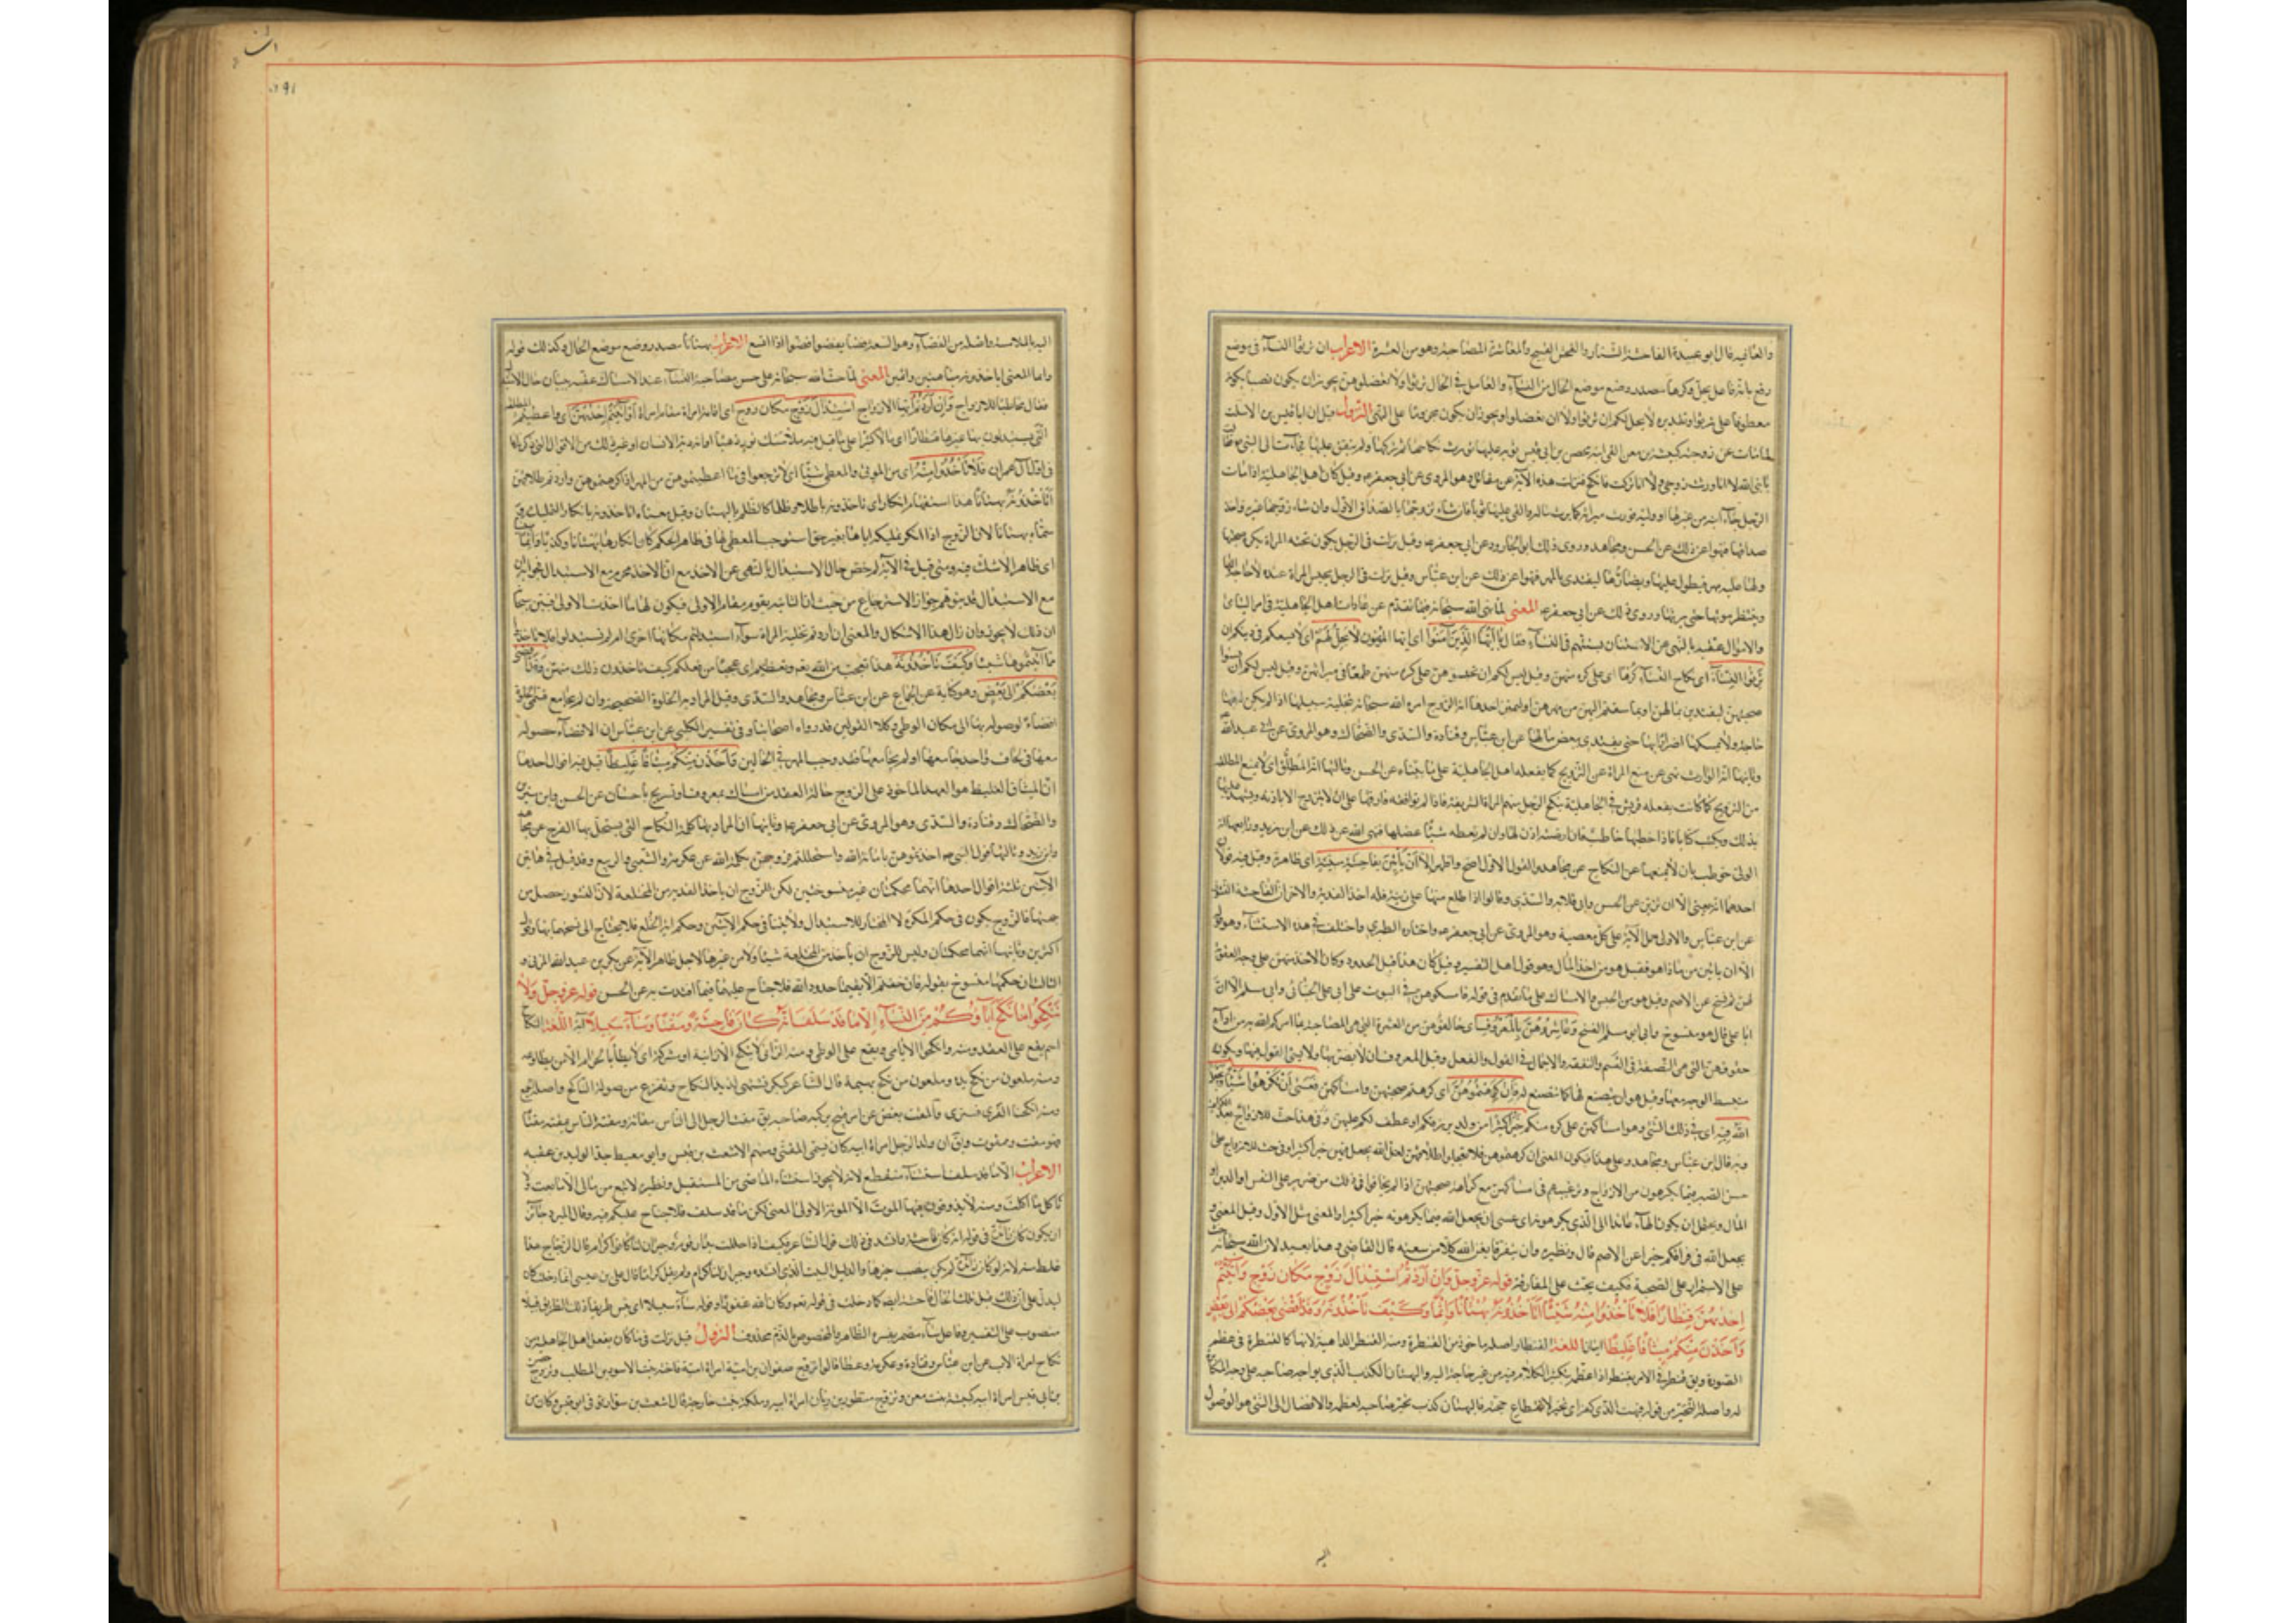 والعانيه قال ابو عبيدة الفاحشة الشنار والفحش القبيح والمعاشرة المصاحبة وهو من العشرة الاعراب ان ترثوا النساء فى موضع
رفع بانه فاعل يحل وكرها مصدر وضع موضع الحال من النساء والعامل فى الحال ترثوا ولا تعضلوهن يجوز ان يكون نصبا بكونه
معطوفا على ترثوا وتقديره لا يحل لكم ان ترثوا ولا ان تعضلوا ويجوز ان يكون مجزوما على النهى النزول قيل ان ابا قيس بن الاسلت
لما مات عن زوجته كبيشة بنت معن القى ابنه محصن بن ابى قيس ثوبه عليها فورث نكاحها ثم تركها ولم ينفق عليها فجاءت الى النبى فقالت
يا نبى الله لا انا ورثت زوجى ولا انا تركت فانكح فنزلت هذه الآية عن مقاتل وهو المروى عن ابى جعفر وقيل كان اهل الجاهلية اذا مات
الرجل جاء ابنه من غيرها او وليه فورث ميراثه كما يرث ماله والقى عليها ثوبا فان شاء تزوجها بالصداق الاول وان شاء زوجها غيره واخذ
صداقها فنهوا عن ذلك عن الحسن ومجاهد وروى ذلك ابو الجارود عن ابى جعفر وقيل نزلت فى الرجل يكون تحته المراة يكره صحبتها
ولها عليه مهر فيطول عليها ويضارها ليفتدى بالمهر فنهوا عن ذلك عن ابن عباس وقيل نزلت فى الرجل يحبس المراة عنده لا حاجة له اليها
وينتظر موتها حتى يرثها وروى ذلك عن ابى جعفر المعنى لما نهى الله سبحانه فيما تقدم عن عادات اهل الجاهلية فى امر اليتامى
والاموال عقبه بالنهى عن الاستنان بسنتهم فى النساء فقال يا ايها الذين آمنوا اى ايها المؤمنون لا يحل لكم اى لا يسعكم فى دينكم ان
ترثوا النساء اى نكاح النساء كرها اى على كره منهن وقيل ليس لكم ان تحبسوهن على كره منهن طمعا فى ميراثهن وقيل ليس لكم ان تسيؤا
صحبتهن ليفتدين بمالهن او بما سقتم اليهن من مهرهن او ليمتن احدها انه الزوج امره الله سبحانه بتخلية سبيلها اذا لم يكن له فيها
حاجة ولا يمسكها اضرارا بها حتى يفتدى ببعض مالها عن ابن عباس وقتادة والسدى والضحاك وهو المروى عن ابى عبد الله
وثانيها انه الوارث نهى عن منع المراة عن التزويج كما يفعله اهل الجاهلية على ما بيناه عن الحسن وثالثها انه المطلق اى لا يمنع المطلقة
من التزويج كما كانت يفعله قريش فى الجاهلية ينكح الرجل منهم المراة الشريفة فاذا لم توافقه فارقها على ان لا تتزوج الا باذنه ويشهد عليها
بذلك ويكتب كتابا فاذا خطبها خاطب فان ارضته اذن لها وان لم تعطه شيئا عضلها فنهى الله عن ذلك عن ابن زيد ورابعها انه
الولى خوطب بان لا يمنعها عن النكاح عن مجاهد والقول الاول اصح واظهر الا ان ياتين بفاحشة مبينة اى ظاهرة وقيل فيه قولان
احدهما انه يعنى الا ان تزنى عن الحسن وابى قلابه والسدى وقالوا اذا اطلع منها على زنية فله اخذ الفدية والاخر ان الفاحشة النشوز
عن ابن عباس والاولى حمل الآية على كل معصية وهو المروى عن ابى جعفر واختاره الطبرى واختلف فى هذه الاستثناء وهو قوله
الا ان ياتين من ماذا هو فقيل هو من اخذ المال وهو قول اهل التفسير وقيل كان هذا قبل الحدود وكان الاخذ منهن على وجه العقوبة
لهن ثم نسخ عن الاصم وقيل هو من الحبس والامساك على ما تقدم فى قوله فامسكوهن فى البيوت عن ابى على الجبائى وابى مسلم الا ان
ابا على قال هو منسوخ وابى ابو مسلم النسخ وعاشروهن بالمعروف اى خالطوهن من العشرة التى هى المصاحبة بما امركم الله به من اداء
حقوقهن التى هى النصفة فى القسم والنفقة والاجمال فى القول والفعل وقيل المعروف ان لا يضربها ولا يسئ القول فيها ويكون
منبسط الوجه معها وقيل هو ان يتصنع لها كما تتصنع له فان كرهتموهن اى كرهتم صحبتهن وامساكهن فعسى ان تكرهوا شيئا ويجعل
الله فيه اى فى ذلك الشئ وهو امساكهن على كره منكم خيرا كثيرا من ولد يرزقكم او عطف لكم عليهن
وبه قال ابن عباس ومجاهد وعلى هذا يكون المعنى ان كرهتموهن فلا تعجلوا طلاقهن لعل الله يجعل فيهن خيرا كثيرا وفى هذا حث للازواج على
حسن الصبر فيما يكرهون من الازواج وترغيبهم فى امساكهن مع كراهة صحبتهن اذا لم يخافوا فى ذلك من ضرر على النفس او الدين او
المال ويحتمل ان يكون الهاء عائدا الى الذى يكرهونه اى عسى ان يجعل الله فيما يكرهونه خيرا كثيرا والمعنى مثل الاول وقيل المعنى و
يجعل الله فى فراقكم خيرا عن الاصم قال ونظيره وان يتفرقا يغن الله كلا من سعته قال القاضى وهذا بعيد لان الله سبحانه حث
على الاستمرار على الصحبة فكيف يحث على المفارقة قوله عز وجل وان اردتم استبدال زوج مكان زوج وآتيتم
احديهن قنطارا فلا تأخذوا منه شيئا اتأخذونه بهتانا واثما وكيف تأخذونه وقد افضى بعضكم الى بعض
واخذن منكم ميثاقا غليظا آيتان اللغة القنطار اصله ماخوذ من القنطرة ومنه القنطر الداهية لانها كالقنطرة فى عظم
الصورة ويق قنطر فى الامر يقنطر اذا عظم بتكثير الكلام فيه من غير حاجة اليه والبهتان الكذب الذى يواجه به صاحبه على وجه المكابرة
له واصله التحير من قوله فبهت الذى كفر اى تحير لانقطاع حجته فالبهتان كذب يحير صاحبه لعظمه والافضاء الى الشئ هو الوصول
اليه
اليه بالملامسة واصله من الفضاء وهو السعة فضا يفضو افضوا اذا اتسع الاعراب بهتانا مصدر وضع موضع الحال وكذلك قوله
واثما المعنى اتاخذونه مباهتين واثمين المعنى لما حث الله سبحانه على حسن مصاحبة النساء عند الامساك عقبه ببيان حال الاستبدال
فقال مخاطبا للازواج وان اردتم ايها الازواج استبدال زوج مكان زوج اى اقامة امراة مقام امراة وآتيتم احديهن اى واعطيتم المطلقة
التى تستبدلون بها غيرها قنطارا اى مالا كثيرا على ما قيل فيه ملأ مسك ثور ذهبا او انه دية الانسان او غير ذلك من الاقوال التى ذكرناها
فى اول آل عمران فلا تأخذوا منه اى من المؤتى والمعطى شيئا اى لا ترجعوا فى ما اعطيتموهن من المهر اذا كرهتموهن واردتم طلاقهن
اتأخذونه بهتانا هذا استفهام انكار اى تاخذونه باطلا وظلما كالظلم بالبهتان وقيل معناه اتاخذونه بانكار التمليك وسماه
بهتانا لان الزوج اذا انكر تمليكه اياها بغير حق استوجب المعطى لها فى ظاهر الحكم كان انكاره بهتانا وكذبا واثما
اى ظاهرا لا شك فيه ومتى قيل فى الآية لم خص حال الاستبدال بالنهى عن الاخذ مع ان الاخذ محرم مع الاستبدال فجوابه ان
مع الاستبدال قد يتوهم جواز الاسترجاع من حيث ان الثانية يقوم مقام الاولى فيكون لها ما اخذت الاولى فبين سبحانه
ان ذلك لا يجوز وان زال هذا الاشكال والمعنى ان اردتم تخلية المراة سواء استبدلتم مكانها اخرى ام لم تستبدلوا فلا تاخذوا
مما آتيتموها شيئا وكيف تأخذونه هذا تعجب من الله تعم وتعظيم اى عجبا من فعلكم كيف تاخذون ذلك منهن وقد افضى
بعضكم الى بعض وهو كناية عن الجماع عن ابن عباس ومجاهد والسدى وقيل المراد به الخلوة الصحيحة وان لم يجامع فسمى الخلوة
افضاء لوصوله بها الى مكان الوطى وكلا القولين قد رواه اصحابنا وفى تفسير الكلبى عن ابن عباس ان الافضاء حصوله
معها فى لحاف واحد جامعها او لم يجامعها فقد وجب المهر فى الحالين واخذن منكم ميثاقا غليظا قيل فيه اقوال احدها
ان الميثاق الغليظ هو العهد الماخوذ على الزوج حالة العقد من امساك بمعروف او تسريح باحسان عن الحسن وابن سيرين
والضحاك وقتادة والسدى وهو المروى عن ابى جعفر وثانيها ان المراد بها كلمة النكاح التى يستحل بها الفرج عن مجاهد
وابن زيد وثالثها قول النبى اخذتموهن بامانة الله واستحللتم فروجهن بكلمة الله عن عكرمة والشعبى والربيع وقد قيل فى هاتين
الآيتين ثلثة اقوال احدها انهما محكمتان غير منسوختين لكن للزوج ان ياخذ الفدية من المختلعة لان النشوز حصل من
جهتها فالزوج يكون فى حكم المكره لا المختار للاستبدال ولا يتنافى حكم الآيتين وحكم آية الخلع فلا يحتاج الى نسخها بها وهو قول
اكثرين وثانيها انهما محكمتان وليس للزوج ان يأخذ من المختلعة شيئا ولا من غيرها لاجل ظاهر الآية عن بكر بن عبد الله المزنى و
الثالث ان حكمها منسوخ بقوله فان خفتم الا يقيما حدود الله فلا جناح عليهما فيما افتدت به عن الحسن قوله عز وجل ولا
تنكحوا ما نكح آباؤكم من النساء الا ما قد سلف انه كان فاحشة ومقتا وساء سبيلا آية اللغة النكاح
اسم يقع على العقد ومنه وانكحوا الايامى ويقع على الوطى ومنه الزانى لا ينكح الا زانية او مشركة اى لا يطأ بالحرام الا من يطاوعه
ومنه ملعون من نكح يده وملعون من نكح بهيمة قال الشاعر كبكر تشتهى لذيذ النكاح وتفزع من صولة الناكح واصله الجمع
ومنه انكحنا الفرى فسنرى والمقت بغض عن امر قبيح يركبه صاحبه يق مقت الرجل الى الناس مقاتة ومقته الناس يمقته مقتا
فهو مقيت وممقوت ويق ان ولد الرجل من امراة ابيه كان يسمى المقتى ومنهم الاشعث بن قيس وابو معيط جد الوليد بن عقبه
الاعراب الا ما قد سلف استثناء منقطع لانه لا يجوز استثناء الماضى من المستقبل ونظيره لا تبع من مالى الا ما بعت ولا
تاكل الا ما اكلت ومنه لا يذوقون فيها الموت الا الموتة الاولى المعنى لكن ما قد سلف فلا جناح عليكم فيه وقال المبرد جائز
ان يكون كان زائدة فى قوله انه كان فاحشة وانشد فى ذلك قول الشاعر فكيف اذا حللت بدار قوم وجيران لنا كانوا كرام قال الزجاج هذا
غلط منه لانه لو كان زائدة لم يكن ينصب خبرها والدليل البيت الذى انشده وجيران لنا كانوا كرام ولم يقل كراما قال على بن عيسى انما دخلت كان
ليدل على ان ذلك قبل تلك الحال فاحشة ايضا كما دخلت فى قوله تعم وكان الله غفورا وقوله ساء سبيلا اى بئس طريقا ذلك الطريق فسبيلا
منصوب على التفسير وفاعل ساء مضمر يفسره الظاهر والمخصوص بالذم محذوف النزول قيل نزلت فى ما كان يفعل اهل الجاهلية من
نكاح امراة الاب عن ابن عباس وقتادة وعكرمة وعطا قالوا تزوج صفوان بن امية امراة ابيه فاخته بنت الاسود بن المطلب وتزوج حصن
بن ابى قيس امراة ابيه كبيشة بنت معن وتزوج منظور بن ريان امراة ابيه مليكة بنت خارجة قال اشعث بن سوار توفى ابو قيس وكان من